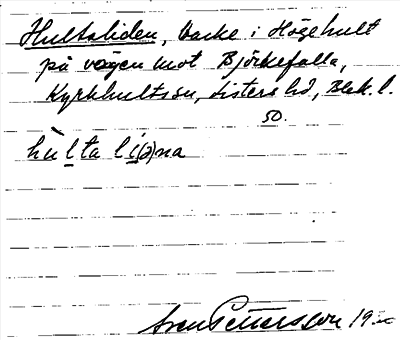 Hultaliden, backe i Högehult
på vägen mot Björkefalla,
Kyrkhults sn, Listers hd, Blek. l.
50.
hùlta li(ə)na
Sven Pettersson 19